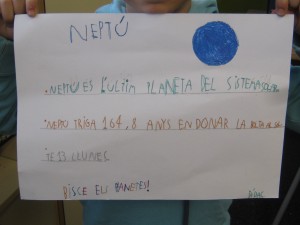 NEPTÚ
.NEPTÚ ES L'ULTIM PLANETA DEL SISTEMA SOLAR
.NEPTU TRIGA 164,8 ANYS EN DONAR LA VOLTA AL SOL
TE 13 LLUNES
DISCE EU PANETES!